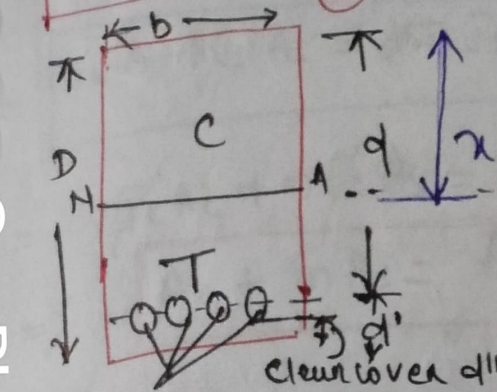 b
C
D
d
x
N
A
T
d'
clear cover d"